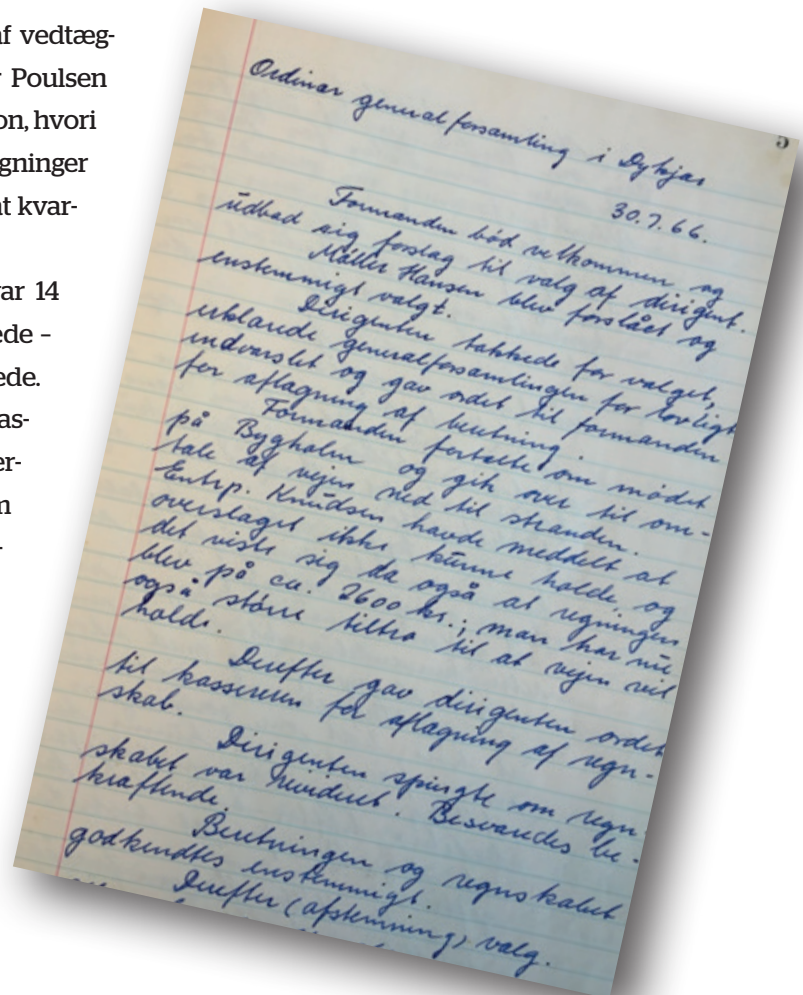 af vedtæg-
Poulsen
on, hvori
gninger
t kvar-
var 14
ede –
ede.
as-
er-
m
-
5
Ordinær generalforsamling i Dykjær
30.7.66.
Formanden bød velkommen og
udbad sig forslag til valg af dirigent.
Møller Hansen blev foreslået og
enstemmigt valgt.
Dirigenten takkede for valget,
erklærede generalforsamlingen for lovligt
indvarslet og gav ordet til formanden
for aflægning af beretning.
Formanden fortalte om mødet
på Bygholm og gik over til om-
tale af vejen ned til stranden.
Entrp. Knudsen havde meddelt at
overslaget ikke kunne holde, og
det viste sig da også at regningen
blev på ca. 2600 kr.; man har nu
også større tiltro til at vejen vil
holde.
Derefter gav dirigenten ordet
til kassereren for aflægning af regn-
skab.
Dirigenten spurgte om regn-
skabet var revideret. Besvaredes be-
kræftende.
Beretningen og regnskabet
godkendtes enstemmigt.
Derefter (afstemning) valg.